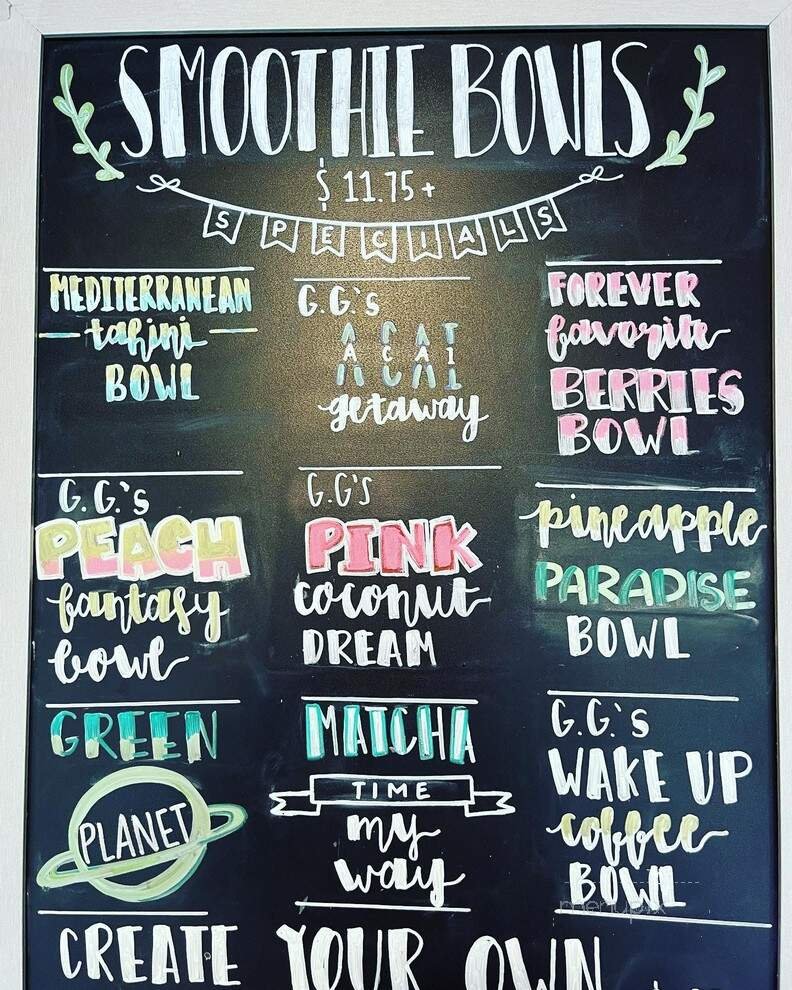 SMOOTHIE BOWLS
$ 11.75+
SPECIALS
MEDITERRANEAN
tahini
BOWL
G.G.'s
ACAI
getaway
FOREVER
favorite
BERRIES
BOWL
G.G.'s
PEACH
fantasy
bowl
G.G'S
PINK
coconut
DREAM
pineapple
PARADISE
BOWL
GREEN
PLANET
MATCHA
TIME
my
way
G.G.'s
WAKE UP
coffee
BOWL
menupix
CREATE YOUR OWN